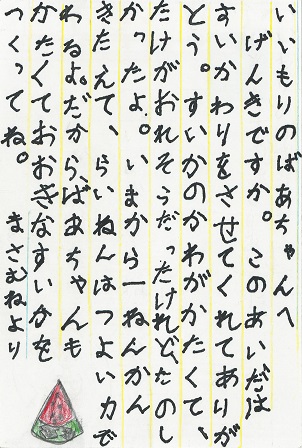 いいもりのばあちゃんへ
げんきですか。このあいだは
すいかわりをさせてくれてありが
とう。すいかのかわがかたくて、
たけがおれそうだったけれど、たのし
かったよ。いまから一ねんかん
きたえて、らいねんはつよい力で
わるよ。だから、ばあちゃんも
かたくておおきなすいかを
つくってね。
まさむねより